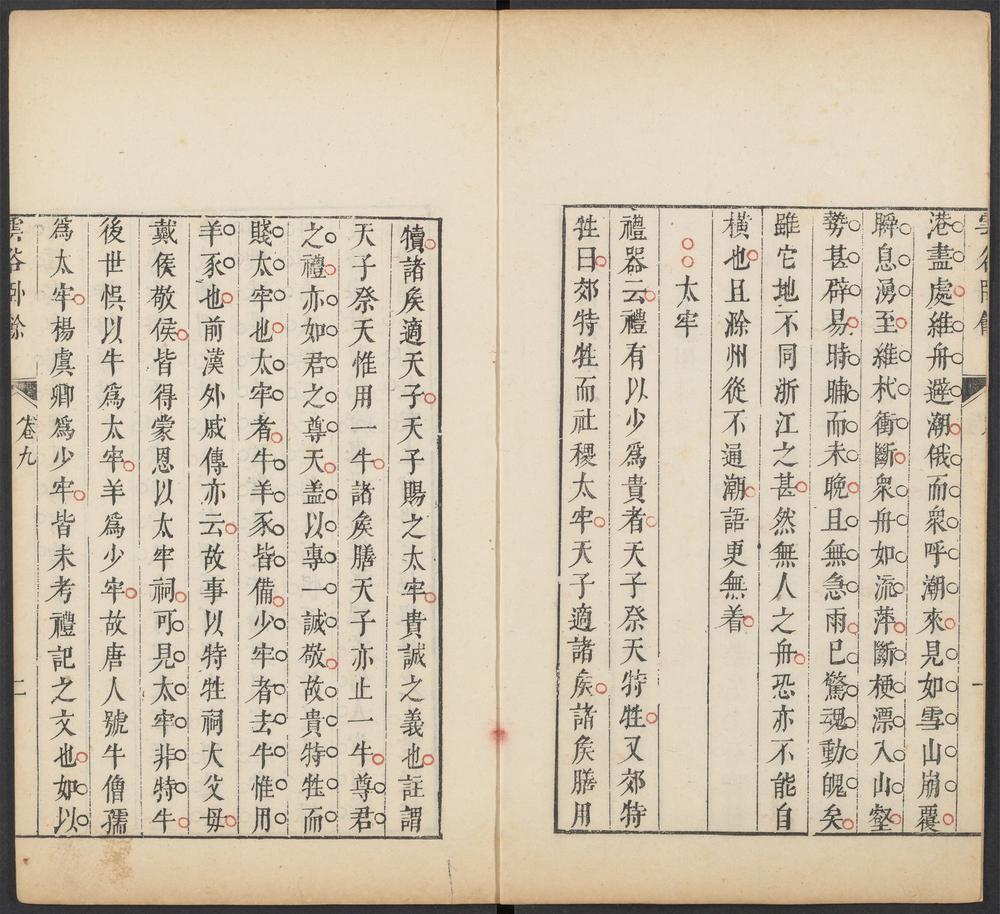 港盡處維舟避潮俄而衆呼潮來見如雪山崩覆
瞬息湧至維杙衝斷衆舟如流萍斷梗漂入山壑
勢甚辟易時晡而未晚且無急雨已驚魂動魄矣
雖它地不同浙江之甚然無人之舟恐亦不能自
橫也且滁州從不通潮語更無着
太牢
禮器云禮有以少爲貴者天子祭天特牲又郊特
牲曰郊特牲而社稷太牢天子適諸矦諸矦膳用
卷九
二
犢諸矦適天子天子賜之太牢貴誠之義也註謂
天子祭天惟用一牛諸矦膳天子亦止一牛尊君
之禮亦如君之尊天盖以專一誠敬故貴特牲而
賤太牢也太牢者牛羊豕皆備少牢者去牛惟用
羊豕也前漢外戚傳亦云故事以特牲祠大父母
戴侯敬侯皆得蒙恩以太牢祠可見太牢非特牛
後世悞以牛爲太牢羊爲少牢故唐人號牛僧孺
爲太牢楊虞卿爲少牢皆未考禮記之文也如以